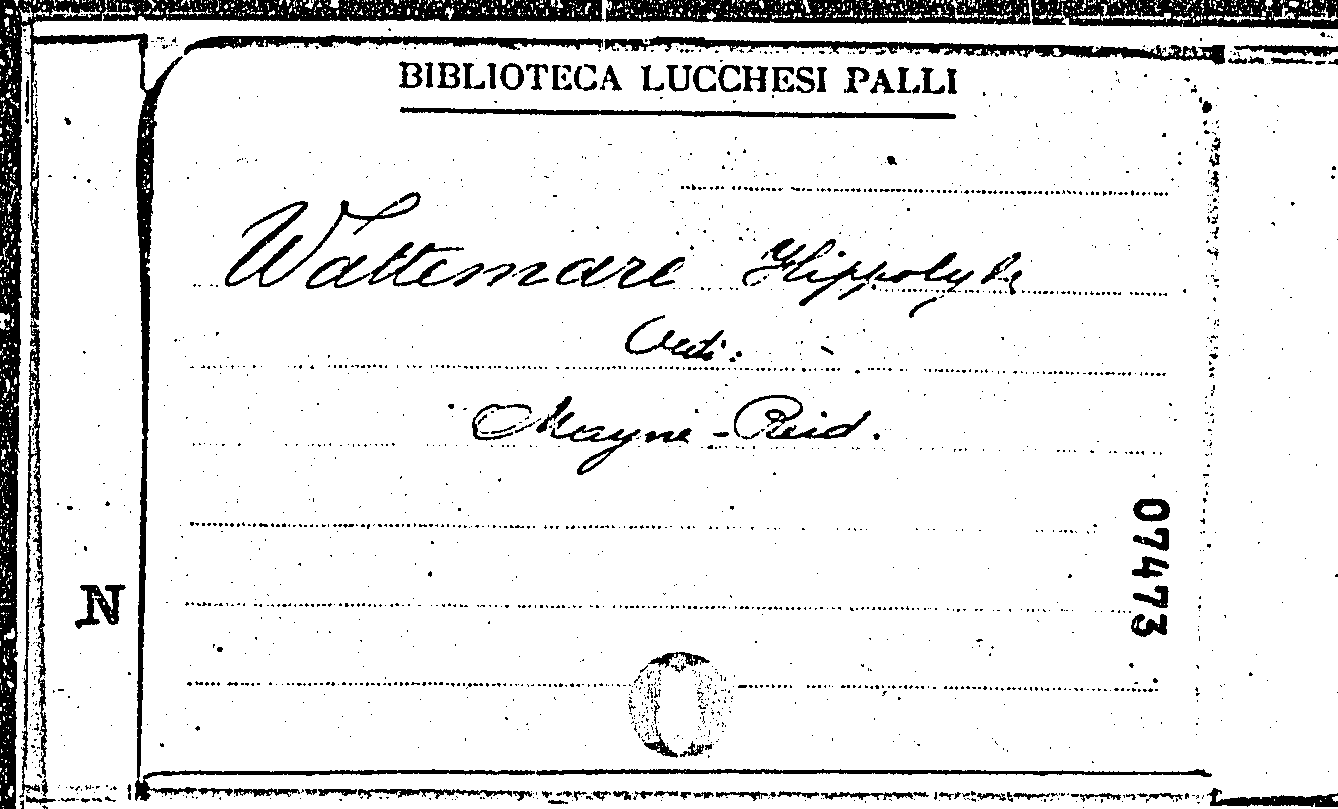 BIBLIOTECA LUCCHESI PALLI
Wattemare Hippolyte
Vedi:
Mayne-Reid.
07473
N